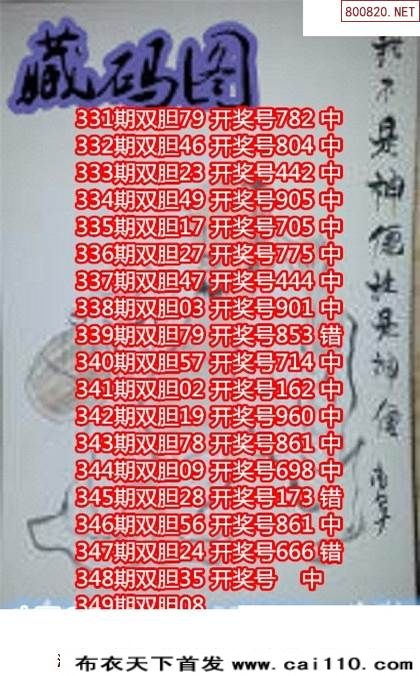 800820.NET
藏码图
331期双胆79 开奖号782 中
332期双胆46 开奖号804 中
333期双胆23 开奖号442 中
334期双胆49 开奖号905 中
335期双胆17 开奖号705 中
336期双胆27 开奖号775 中
337期双胆47 开奖号444 中
338期双胆03 开奖号901 中
339期双胆79 开奖号853 错
340期双胆57 开奖号714 中
341期双胆02 开奖号162 中
342期双胆19 开奖号960 中
343期双胆78 开奖号861 中
344期双胆09 开奖号698 中
345期双胆28 开奖号173 错
346期双胆56 开奖号861 中
347期双胆24 开奖号666 错
348期双胆35 开奖号 中
349期双胆08
我不是神僊胜是神僊
布衣天下首发 www.cai110.com